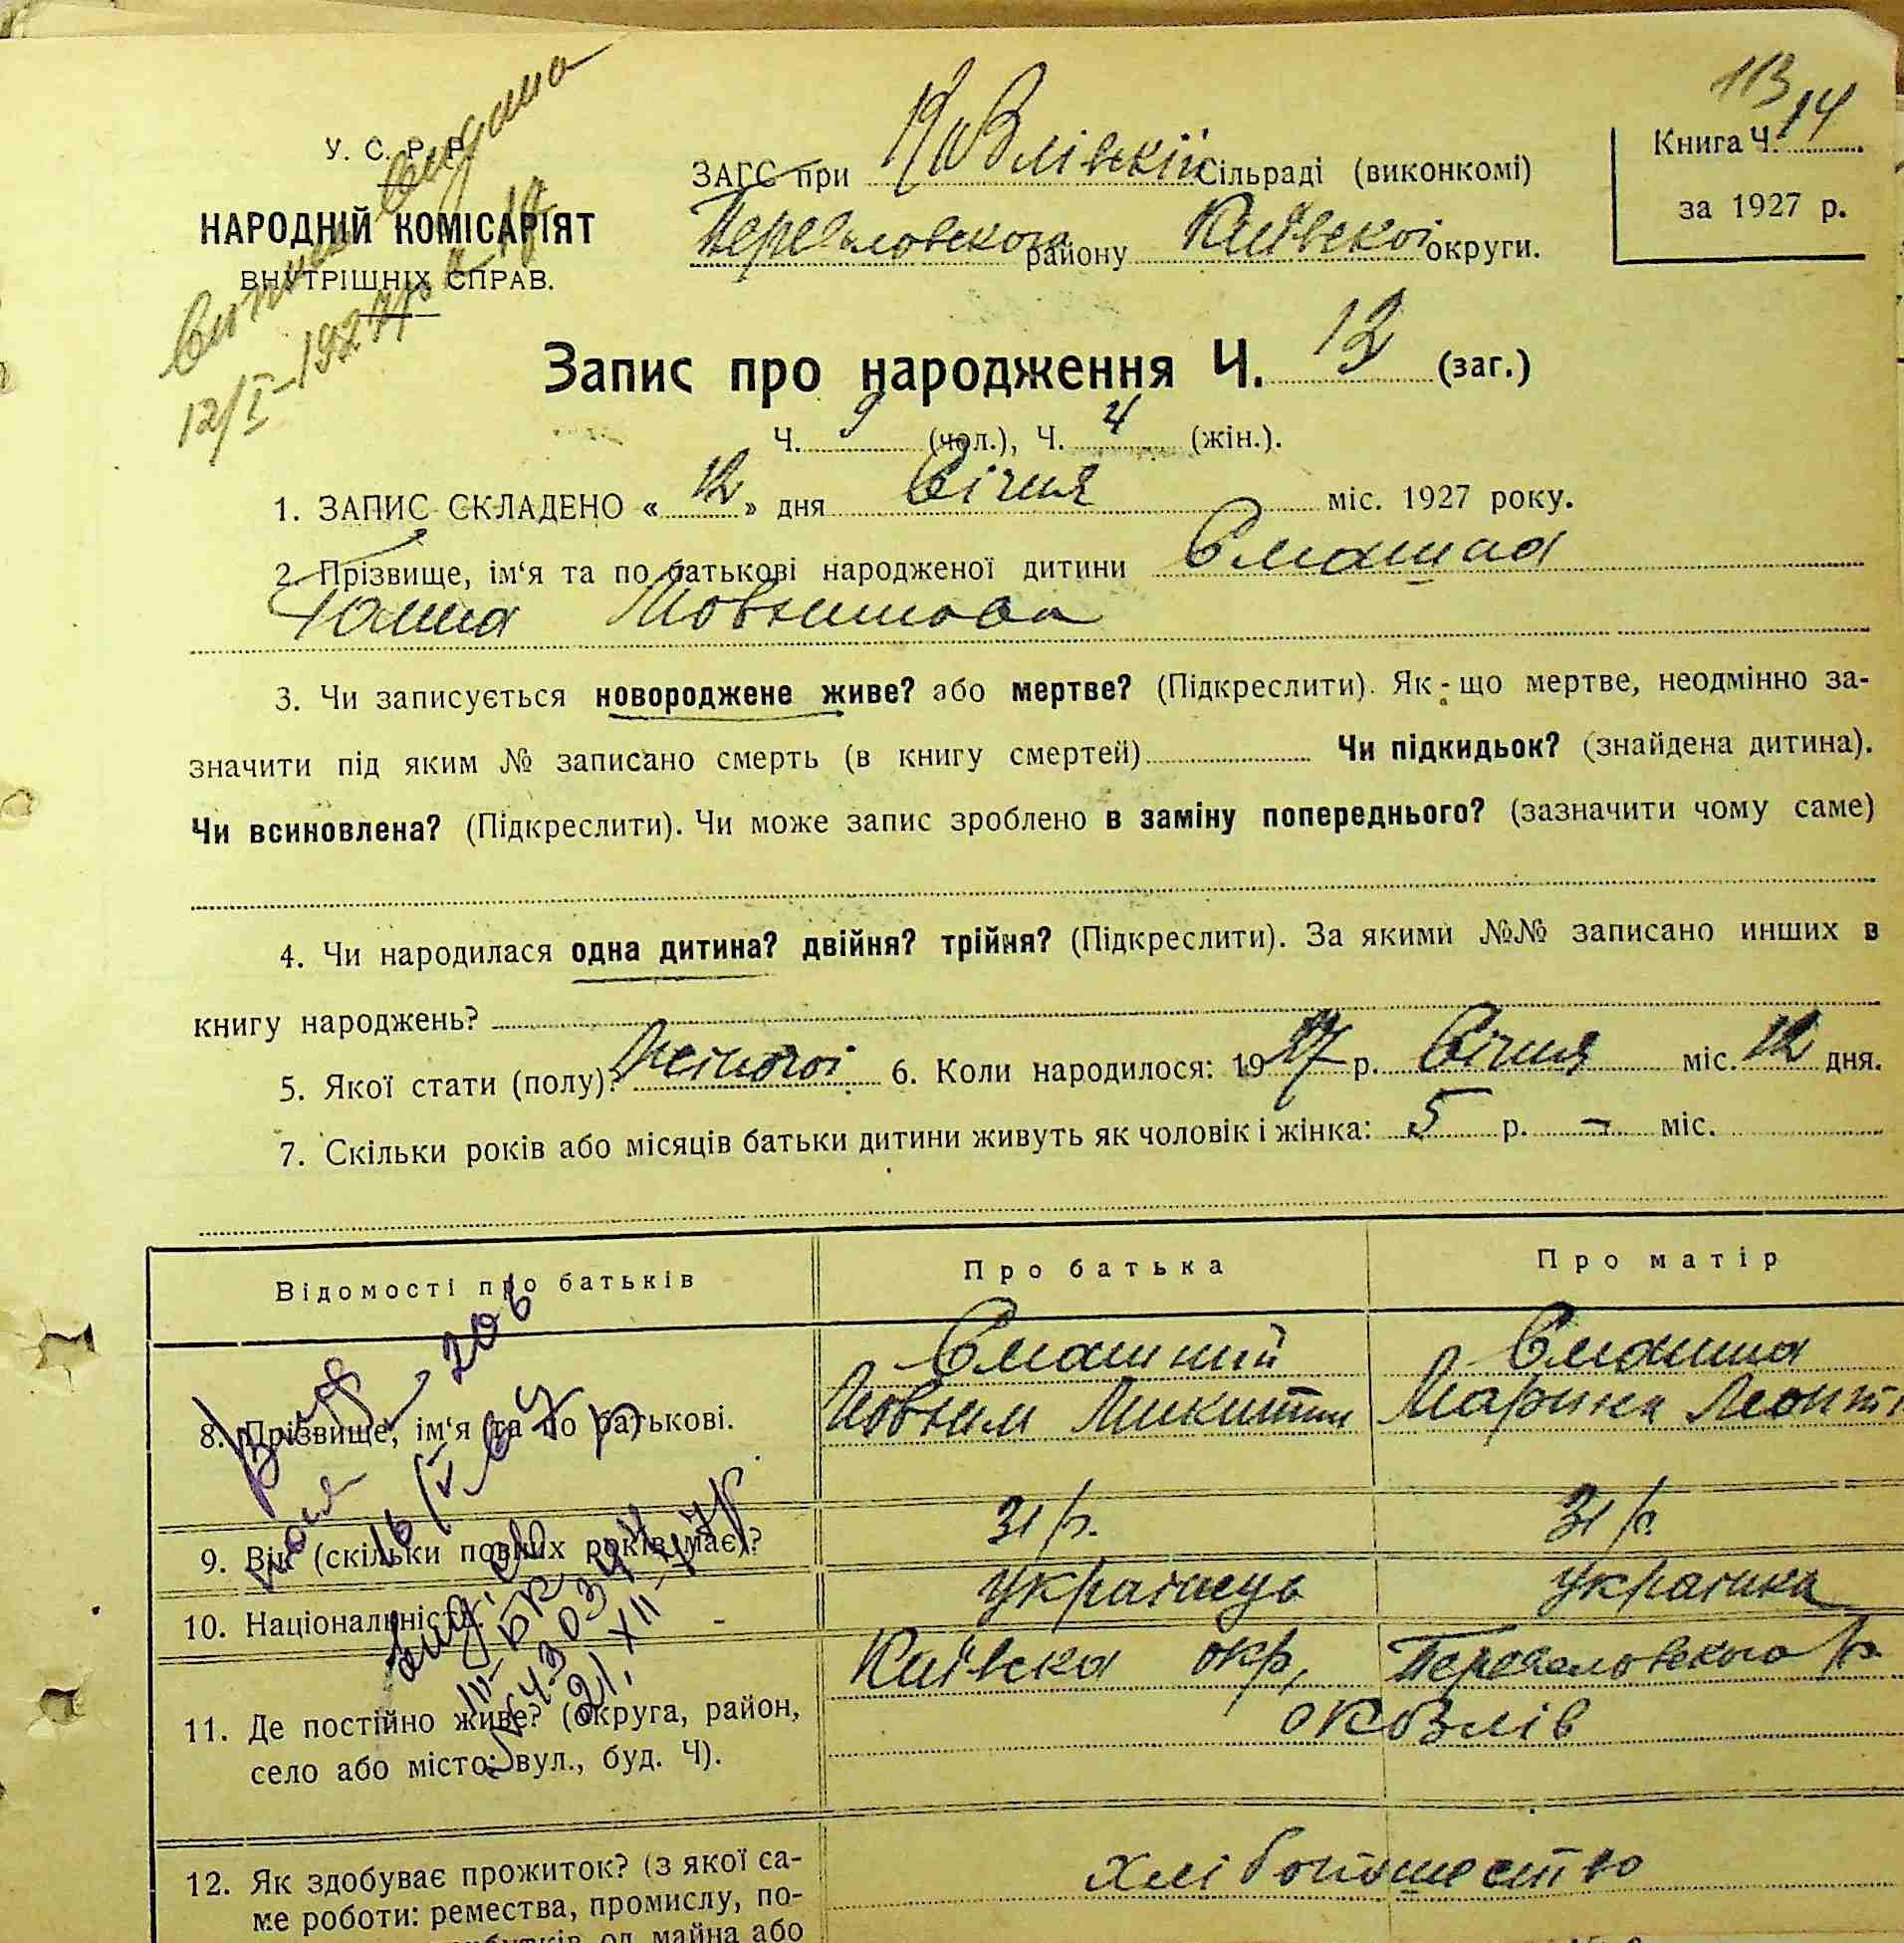 113
14
У. С. Р. Р.
НАРОДНІЙ КОМІСАРІЯТ
ВНУТРІШНІХ СПРАВ.
Випись видана
12/I-1927р.
ЗАГС при Козлівській Сільраді (виконкомі)
району Київської округи.
Книга Ч. 14
за 1927 р.
Запис про народження Ч. 13 (заг.)
Ч. 9 (чол.), Ч. 4 (жін.).
1. ЗАПИС СКЛАДЕНО « 12 » дня Січня міс. 1927 року.
2. Прізвище, ім‘я та по батькові народженої дитини Смашна
Ганна Йовхимова
3. Чи записується новороджене живе? або мертве? (Підкреслити). Як-що мертве, неодмінно за-
значити під яким № записано смерть (в книгу смертей) Чи підкидьок? (знайдена дитина).
Чи всиновлена? (Підкреслити). Чи може запис зроблено в заміну попереднього? (зазначити чому саме)
4. Чи народилася одна дитина? двійня? трійня? (Підкреслити). За якими №№ записано инших в
книгу народжень?
5. Якої стати (полу)? жіночої 6. Коли народилося: 1927 р. Січня міс. 12 дня.
7. Скільки років або місяців батьки дитини живуть як чоловік і жінка: 5 р. - міс.
Відомості про батьків Про батька Про матір
8. Прізвище, ім‘я та по батькові. Смашний Смашна
Йовхим Микитин Марина Леонт
9. Вік (скільки повних років має)? 31 р. 31 р.
10. Національність. Українець Українка
11. Де постійно живе? (округа, район, Київська окр, Переяславського р.
село або місто: вул., буд. Ч). с Козлів
12. Як здобуває прожиток? (з якої са- хлібопашество
ме роботи: ремества, промислу, по-
од майна або